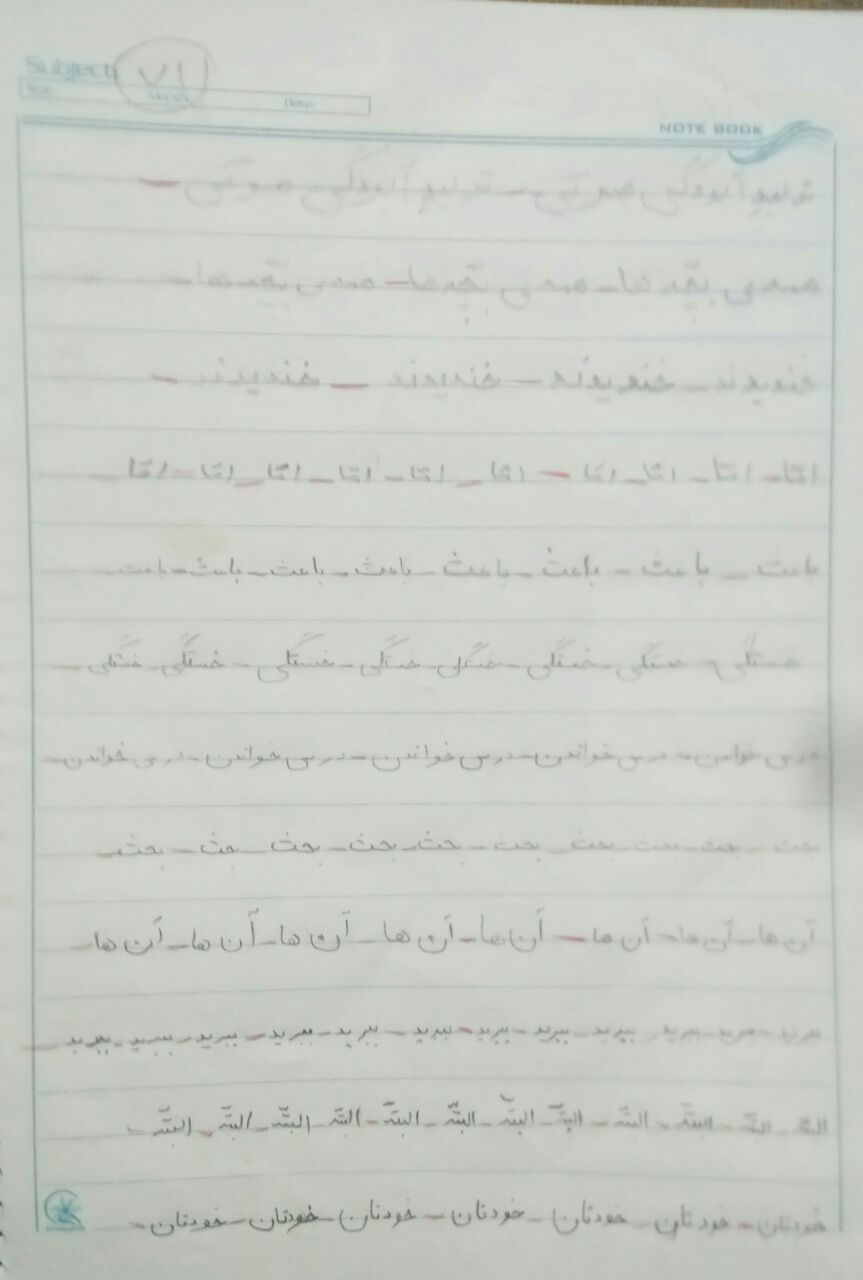 Subject: ۷۱
Date:
NOTE BOOK
تولید آلودگی صوتی - تولید آلودگی صوتی -
همه‌ی بچّه ها - همه‌ی بچّه‌ها - همه‌ی بچّه ها -
خندیدند - خندیدند - خندیدند - خندیدند -
امّا - امّا - امّا - امّا - امّا - امّا - امّا - امّا - امّا - امّا
باعث - باعث - باعث - باعث - باعث - باعث - باعث - باعث
خستگی - خستگی - خستگی - خستگی - خستگی - خستگی - خستگی - خستگی -
درس خواندن - درس خواندن - درس خواندن - درس خواندن - درس خواندن -
بحث - بحث - بحث - بحث - بحث - بحث - بحث - بحث - بحث - بحث -
آن ها - آن ها - آن ها - آن ها - آن ها - آن ها - آن ها - آن ها -
ببرید - ببرید - ببرید - ببرید - ببرید - ببرید - ببرید - ببرید - ببرید - ببرید - ببرید - ببرید
البتّه - البتّه - البتّه - البتّه - البتّه - البتّه - البتّه - البتّه - البتّه - البتّه - البتّه -
خودتان - خودتان - خودتان - خودتان - خودتان - خودتان - خودتان -